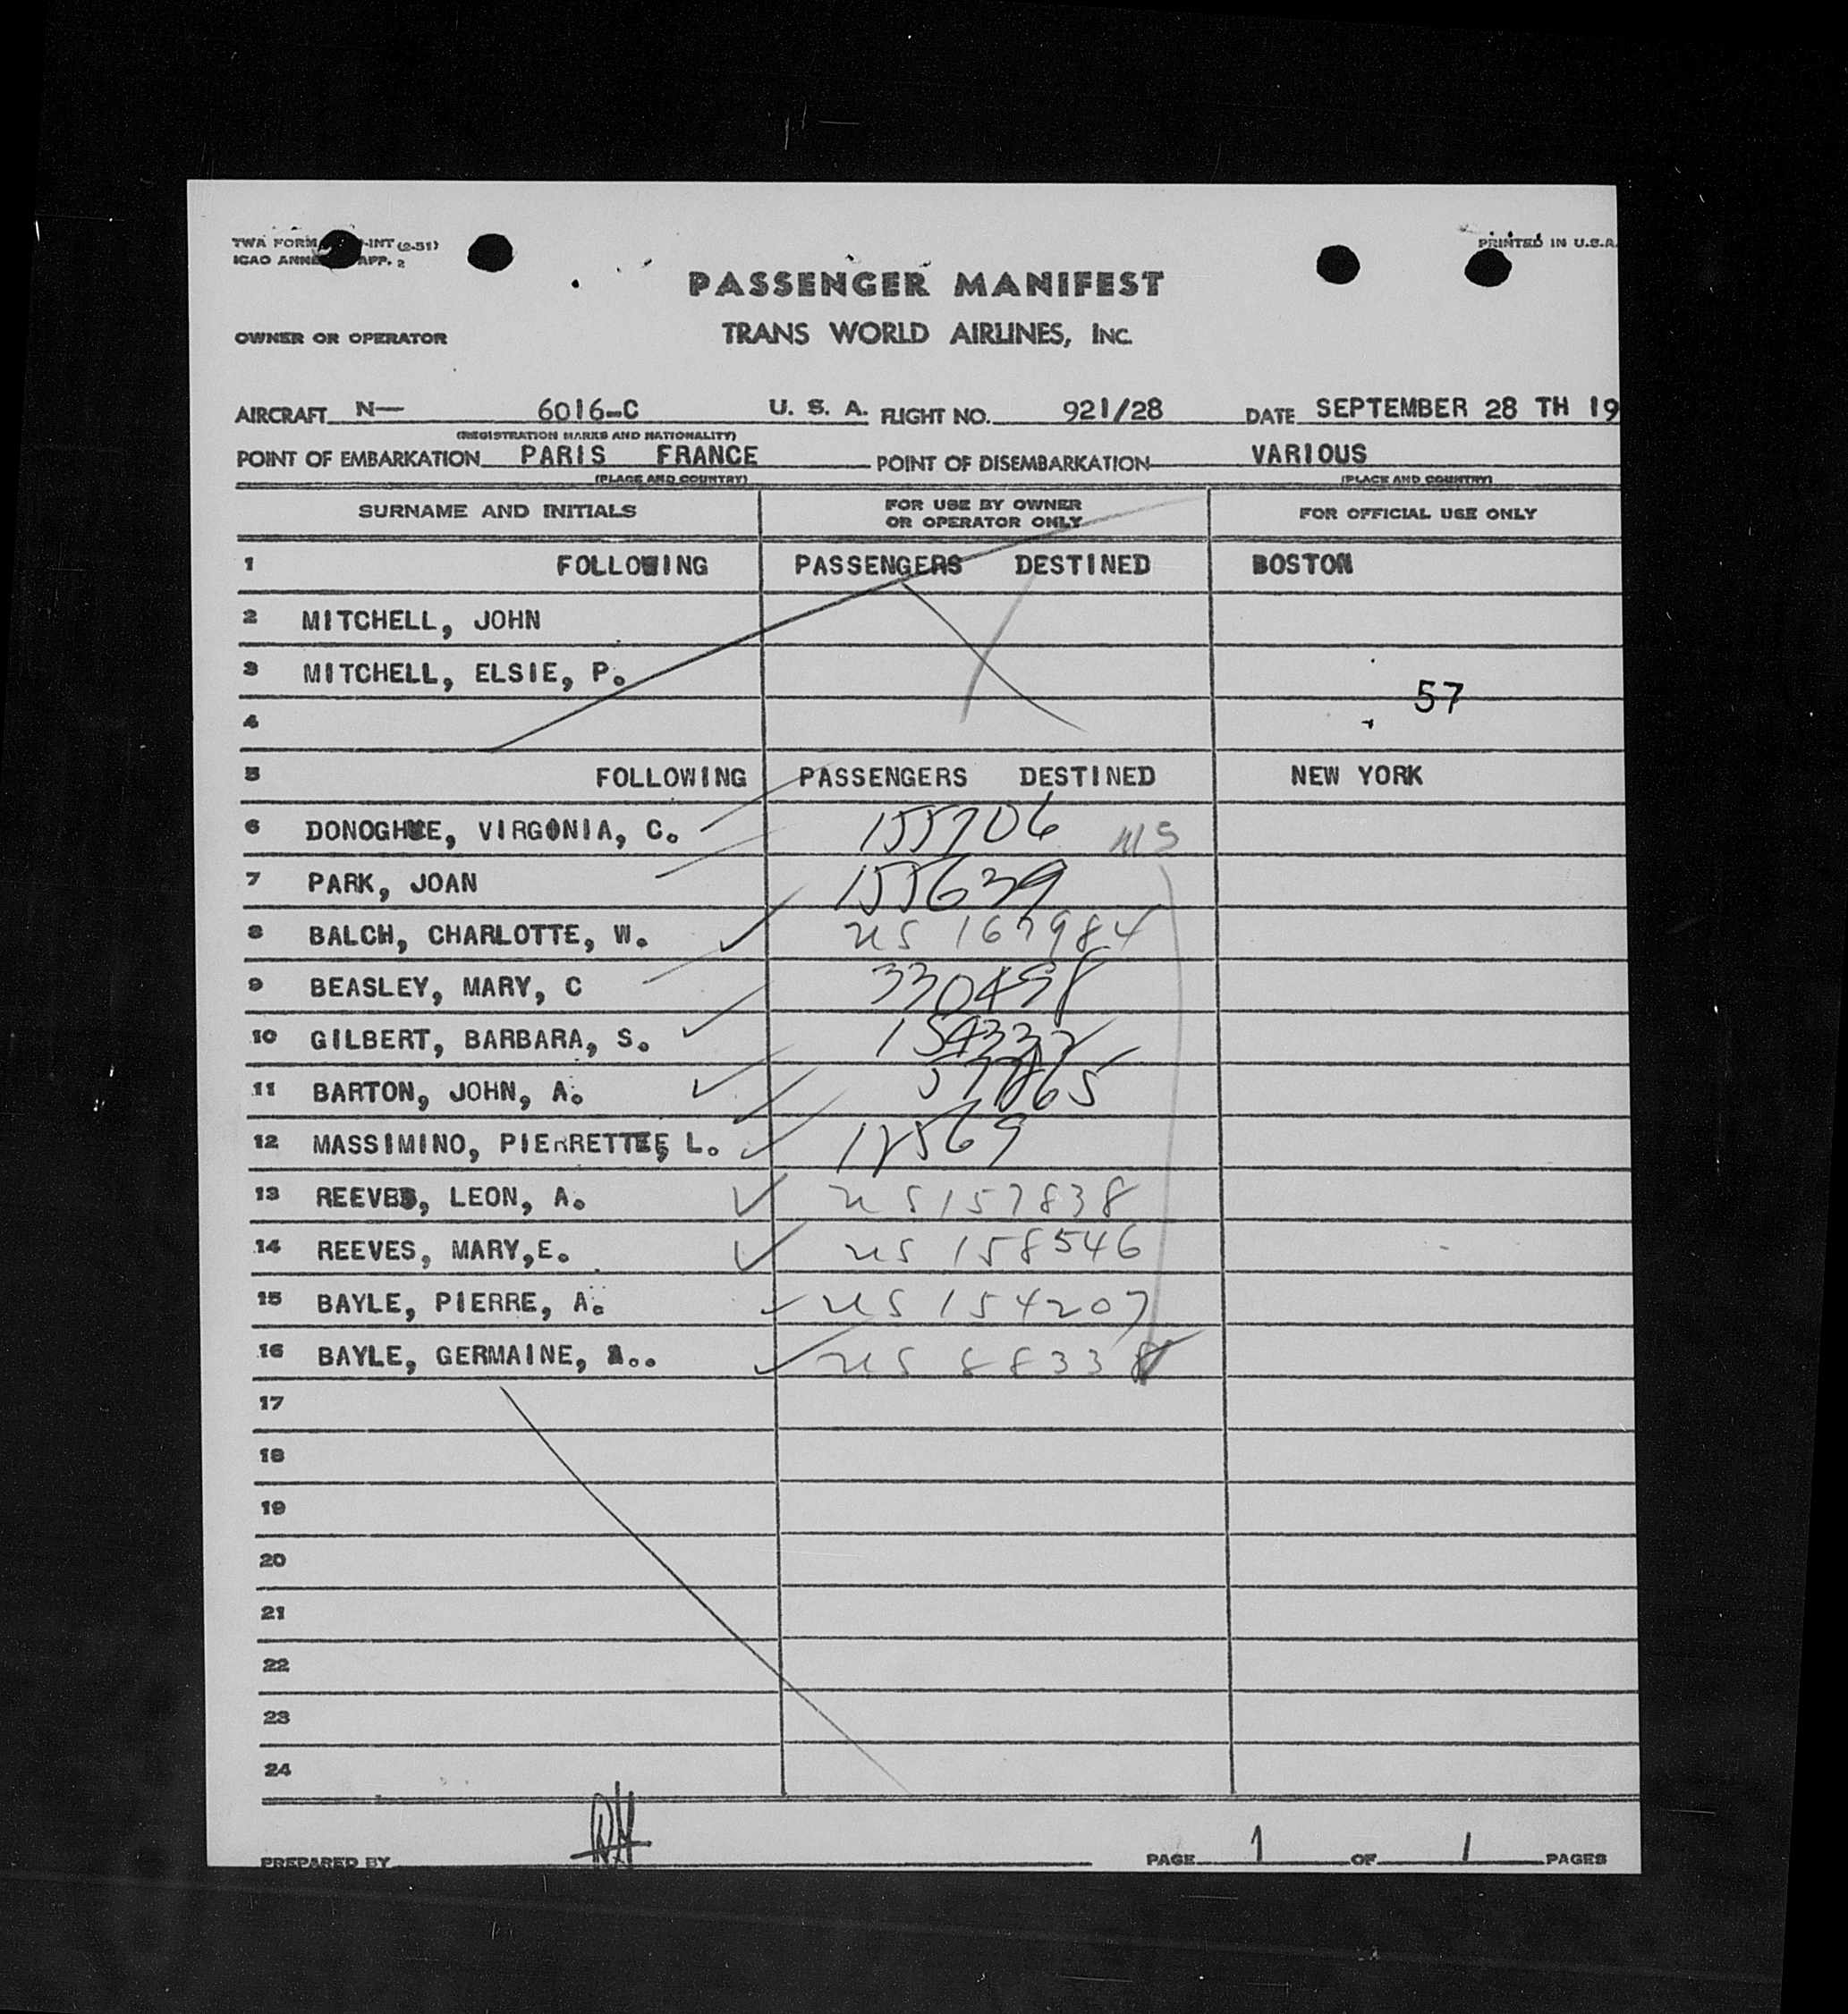 TWA FORM -INT (2-51)
ICAO ANNE APP. 2
PRINTED IN U.S.A.
PASSENGER MANIFEST
OWNER OR OPERATOR TRANS WORLD AIRLINES, INC.
AIRCRAFT N— 6016-C U. S. A. FLIGHT NO. 921/28 DATE SEPTEMBER 28 TH 19
(REGISTRATION MARKS AND NATIONALITY)
POINT OF EMBARKATION PARIS FRANCE POINT OF DISEMBARKATION VARIOUS
(PLACE AND COUNTRY) (PLACE AND COUNTRY)
SURNAME AND INITIALS FOR USE BY OWNER OR OPERATOR ONLY FOR OFFICIAL USE ONLY
1 FOLLOWING PASSENGERS DESTINED BOSTON
2 MITCHELL, JOHN
3 MITCHELL, ELSIE, P.
57
4
5 FOLLOWING PASSENGERS DESTINED NEW YORK
6 DONOGHUE, VIRGONIA, C. 155706 US
7 PARK, JOAN 155639
8 BALCH, CHARLOTTE, W. US 167984
9 BEASLEY, MARY, C 330498
10 GILBERT, BARBARA, S. 154332
11 BARTON, JOHN, A. 57865
12 MASSIMINO, PIERRETTE, L. 18569
13 REEVES, LEON, A. US 157838
14 REEVES, MARY,E. US 158546
15 BAYLE, PIERRE, A. US 154207
16 BAYLE, GERMAINE, US 88338
17
18
19
20
21
22
23
24
PREPARED BY PAGE 1 OF 1 PAGES